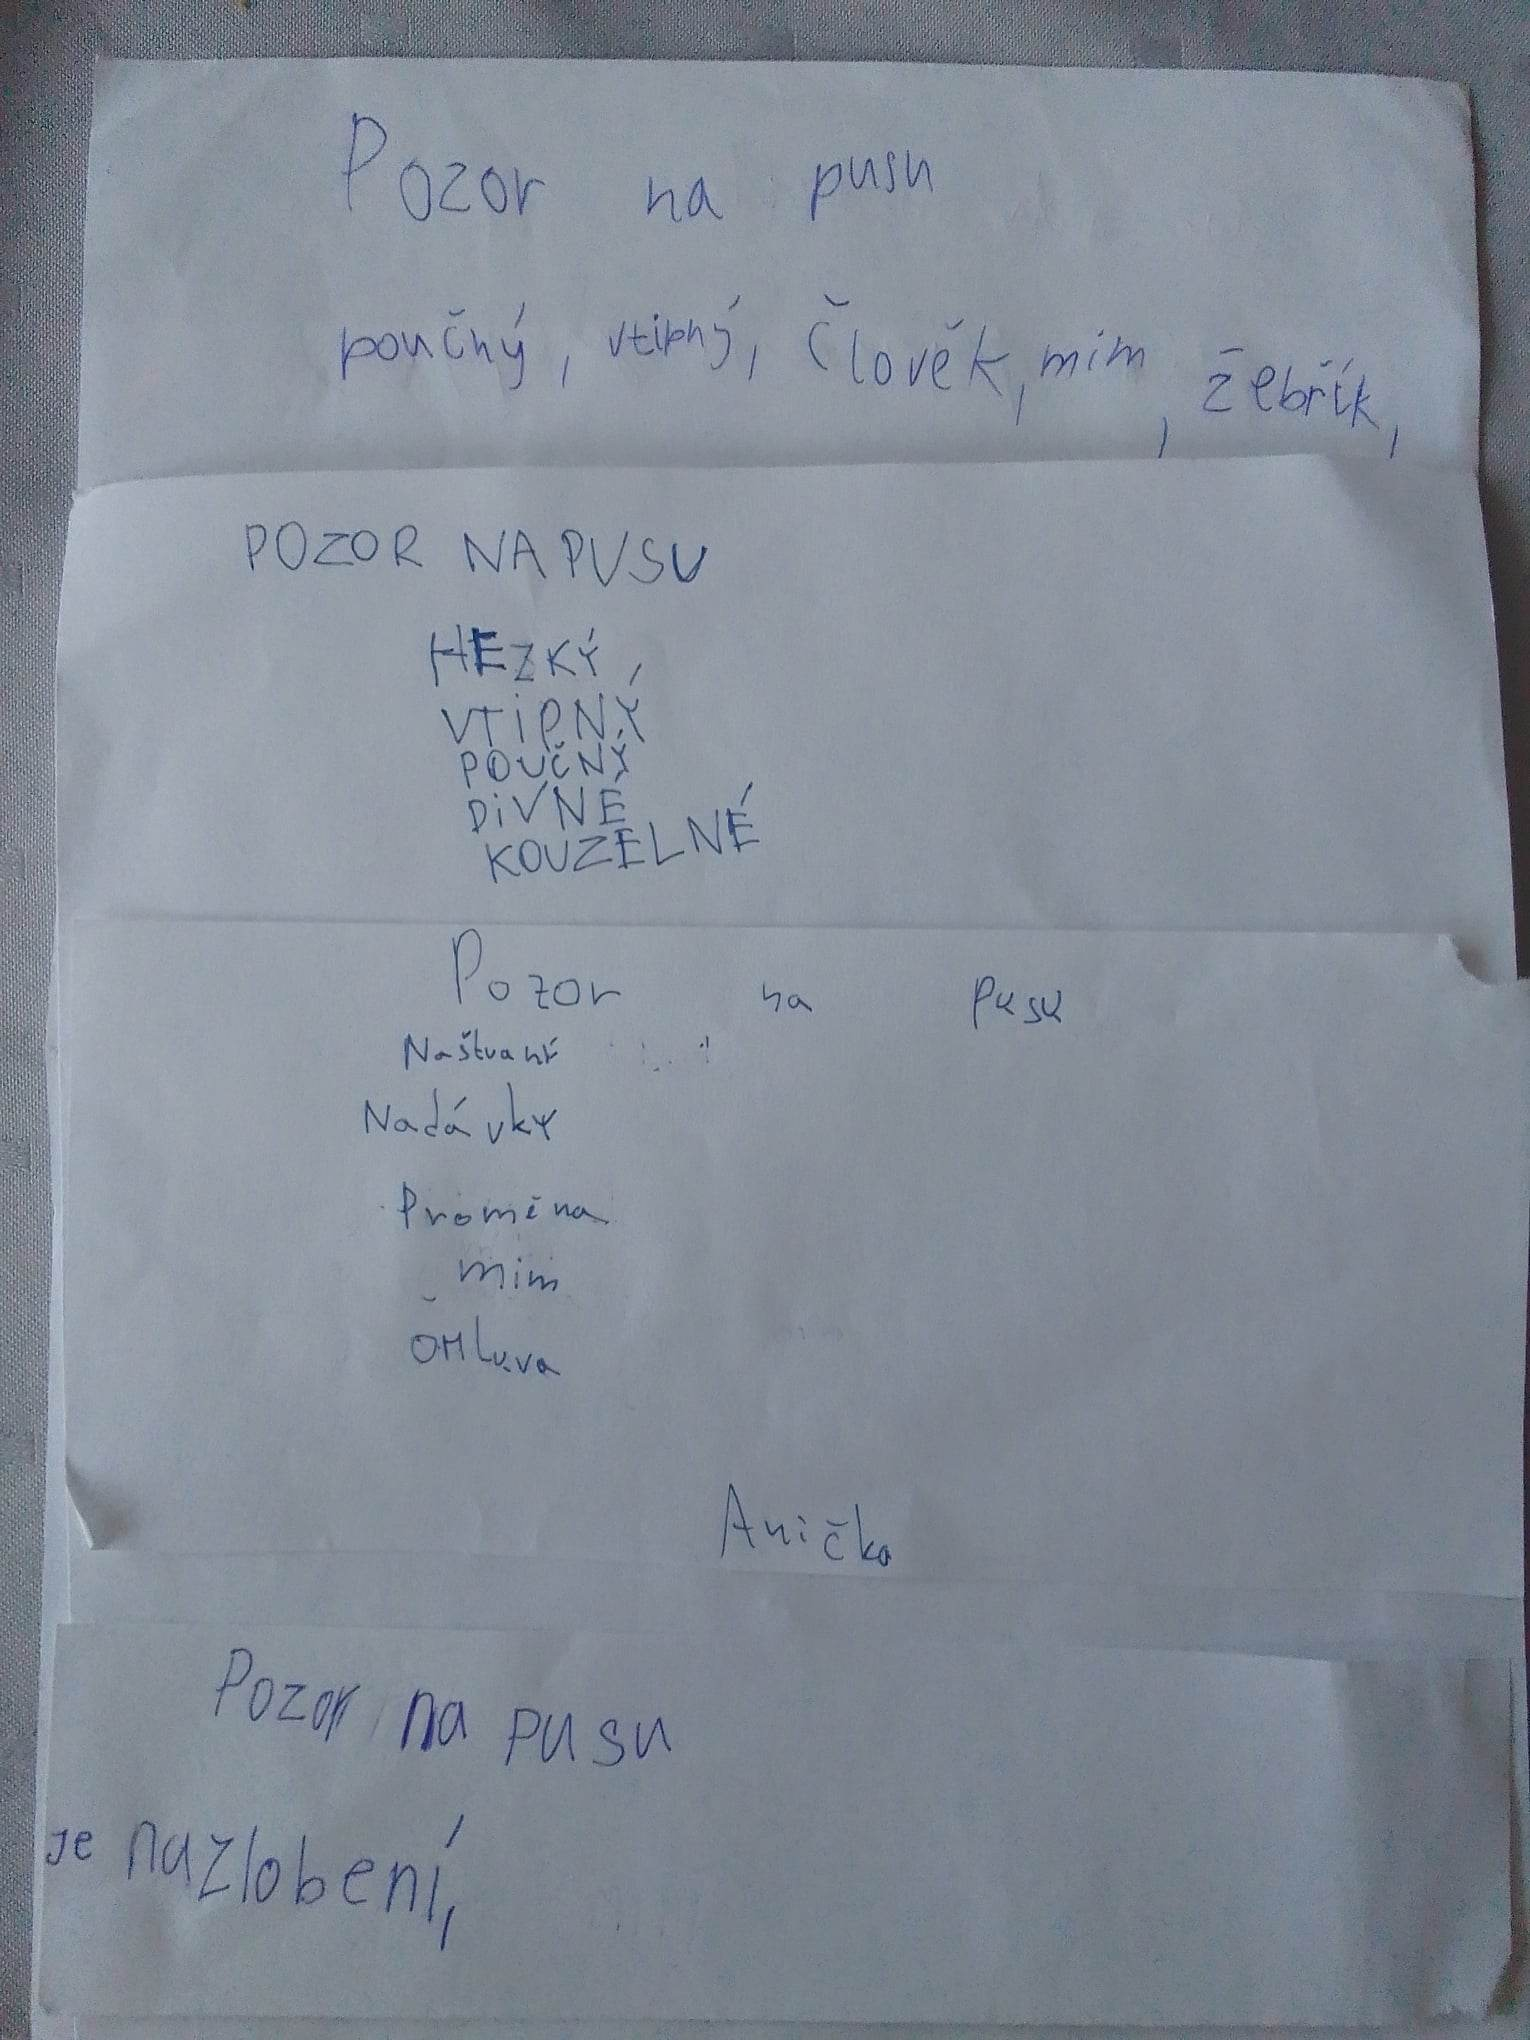 Pozor na pusu
poučný, vtipný, Člověk, mim, žebřík,
POZOR NA PUSU
HEZKÝ,
VTIPNÝ
POUČNÝ
DIVNÉ
KOUZELNÉ
Pozor na pusu
Naštvaný
Nadávky
Proměna
mim
Omluva
Anička
Pozor na pusu
je nazlobení,